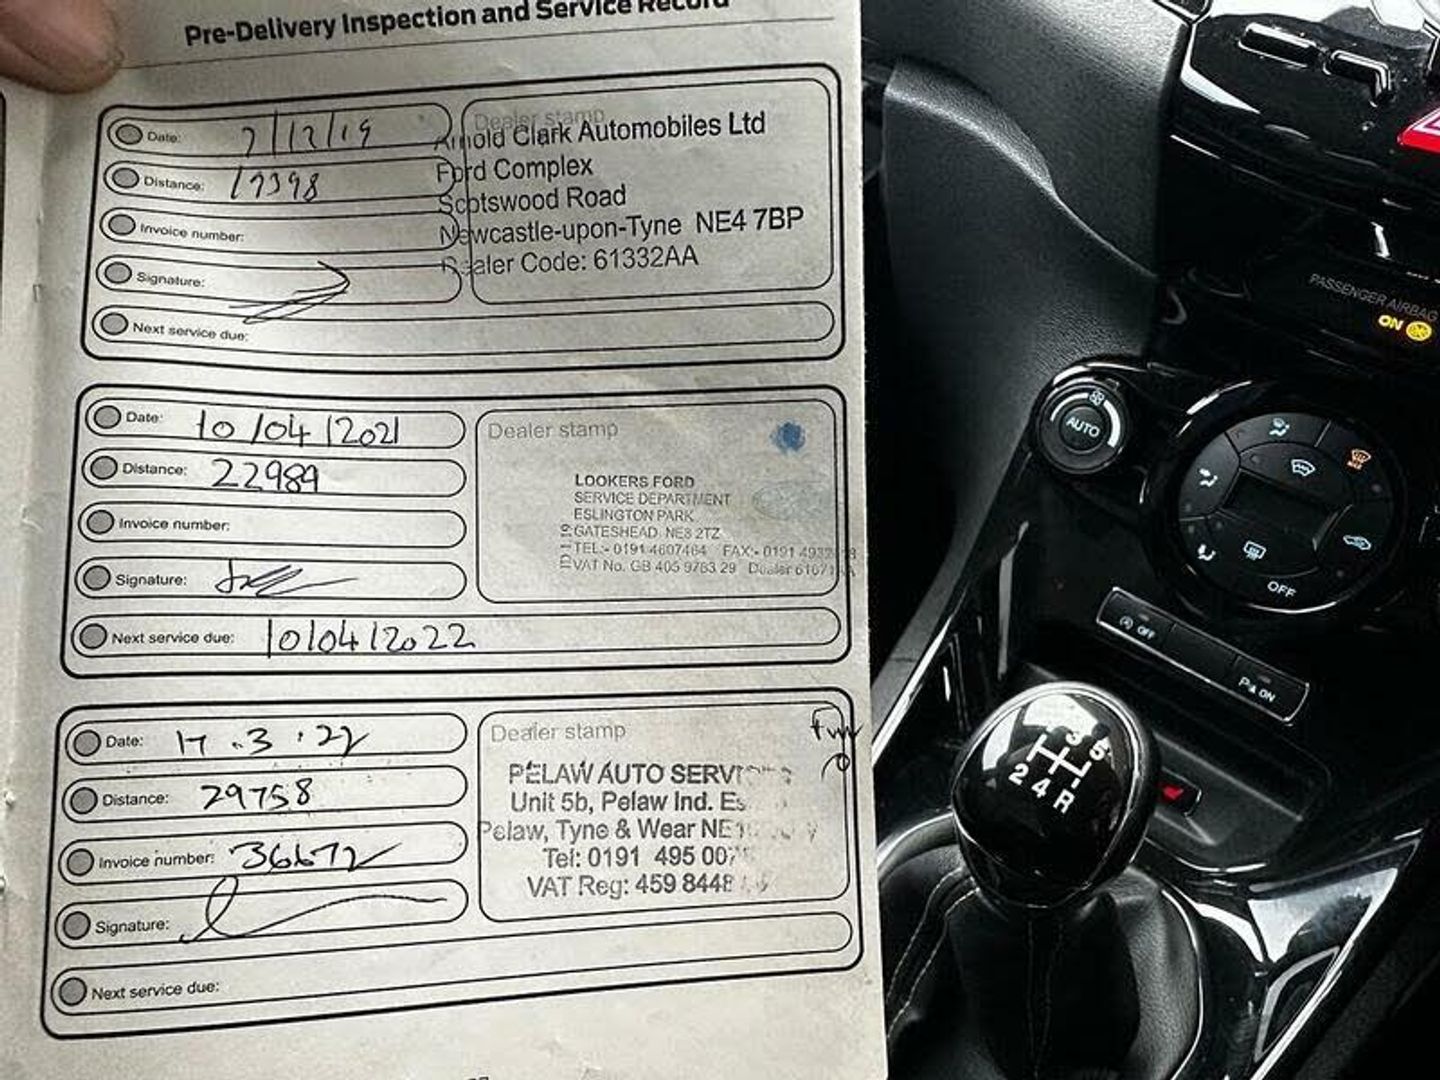 Pre-Delivery Inspection and Service Record
Date: 7/12/19
Distance: 17398
Invoice number:
Signature:
Next service due:
Dealer stamp
Arnold Clark Automobiles Ltd
Ford Complex
Scotswood Road
Newcastle-upon-Tyne NE4 7BP
Dealer Code: 61332AA
Date: 10/04/2021
Distance: 22989
Invoice number:
Signature:
Next service due: 10/04/2022
Dealer stamp
LOOKERS FORD
SERVICE DEPARTMENT
ESLINGTON PARK
GATESHEAD NE8 2TZ
TEL:- 0191 4607464 FAX:- 0191
VAT No. GB 405 9783 29 Dealer
Date: 17.3.22
Distance: 29758
Invoice number: 36672
Signature:
Next service due:
Dealer stamp
PELAW AUTO
Unit 5b, Pelaw Ind.
Pelaw, Tyne & Wear
Tel: 0191 495
VAT Reg: 459
PASSENGER AIRBAG
ON
AUTO
MAX
OFF
OFF
ON
3 5
2 4 R